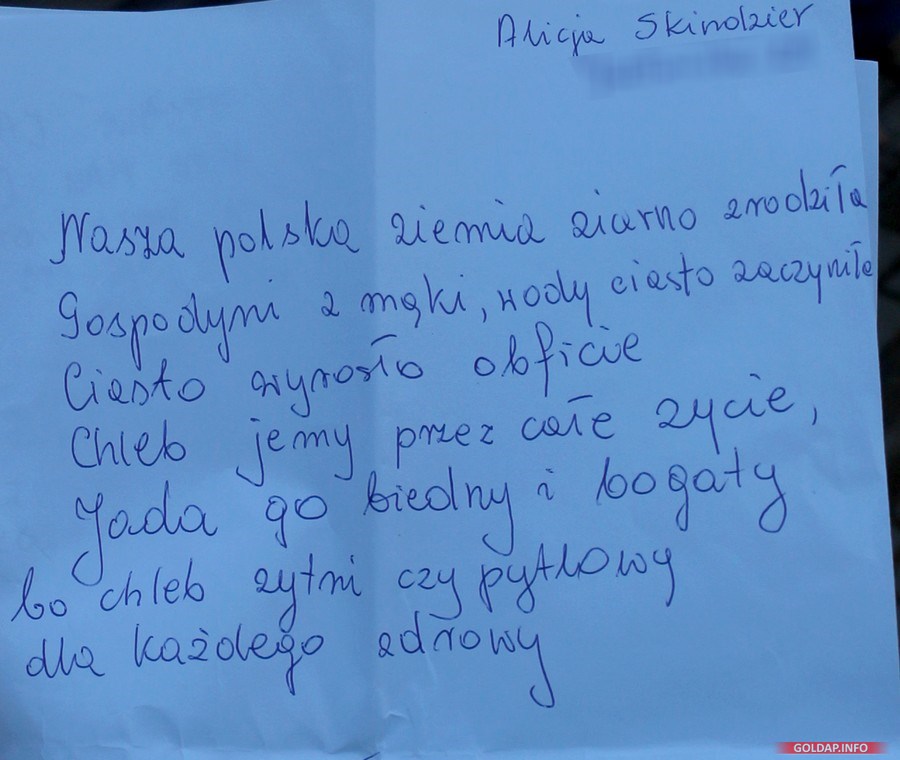 Alicja Skindzier
Nasza polska ziemia ziarno zrodziła
Gospodyni z mąki, wody ciasto zaczyniła
Ciasto wyrosło obficie
Chleb jemy przez całe życie,
Jada go biedny i bogaty
bo chleb żytni czy pytlowy
dla każdego zdrowy
GOLDAP.INFO